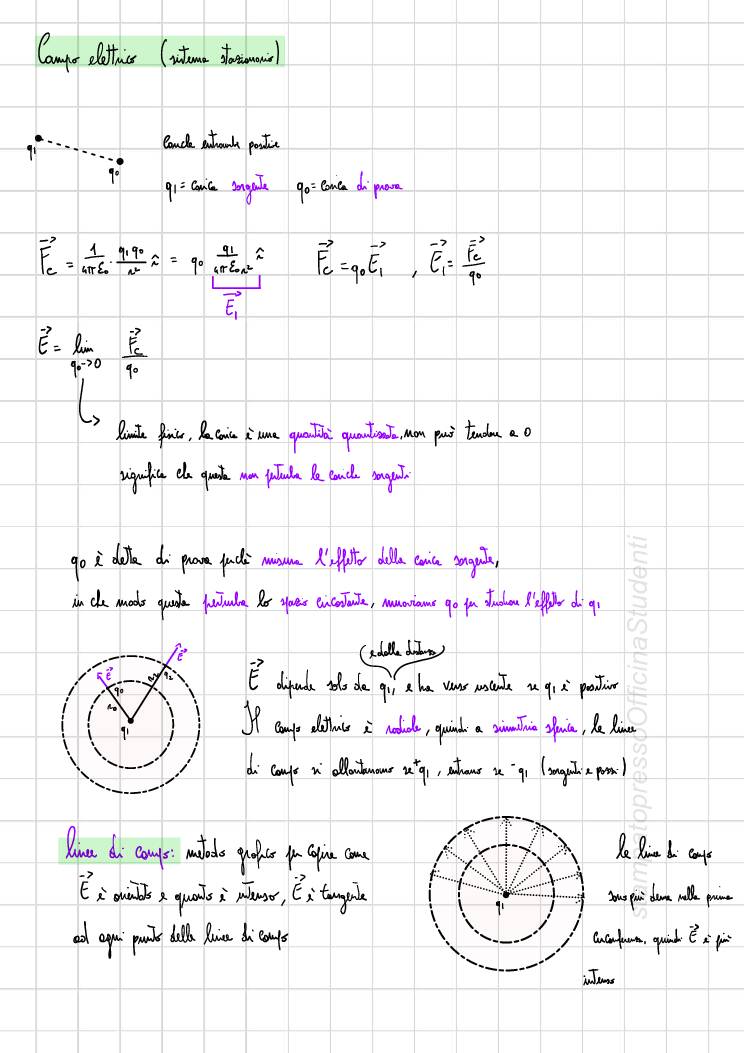 Campo elettrico (sistema stazionario)
q1
q0
Cariche entrambe positive
q1 = carica sorgente q0 = carica di prova
F⃗c = 1/4πε0 · q1q0/r² r̂ = q0 q1/4πε0r² r̂ F⃗c = q0 E⃗1 , E⃗1 = F⃗c/q0
E⃗1
E⃗ = lim q0->0 F⃗c/q0
limite fisico, la carica è una quantità quantizzata, non può tendere a 0
significa che questa non perturba le cariche sorgenti
q0 è detta di prova perchè misura l'effetto della carica sorgente,
in che modo questa perturba lo spazio circostante, muoviamo q0 per studiare l'effetto di q1
(e dalla distanza)
E⃗ dipende solo da q1, e ha verso uscente se q1 è positivo
E⃗ q0 r0 r2 q2 E⃗
q1
Il campo elettrico è radiale, quindi a simmetria sferica, le linee
di campo si allontanano se +q1, entrano se -q1 (sorgenti e pozzi)
linee di campo: metodo grafico per capire come
E⃗ è orientato e quanto è intenso, E⃗ è tangente
ad ogni punto delle linee di campo
q1
le linee di campo
sono più dense nella prima
circonferenza, quindi E⃗ è più
intenso
stampatopressoOfficinaStudenti